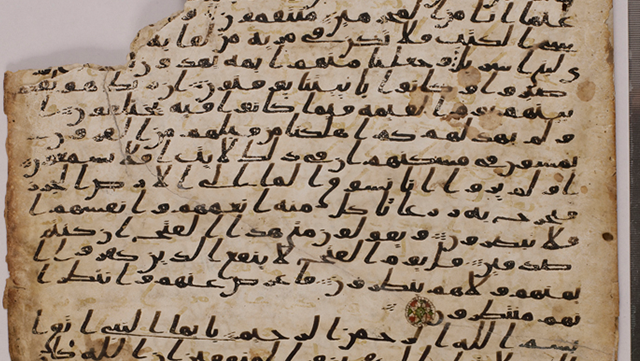 عنها انا من المجرمين منتقمون و
سى الكتب فلا تكن في مرية من لقايه
لبني اسريل وجعلنا منهم ايمة يهدون
صبروا وكانوا بايتنا يوقنون ان ربك هو يفصل
بينهم يوم القيمة فيما كانوا فيه يختلفون ا
ولم يهد لهم كم اهلكنا من قبلهم من القرون
يمشون في مسكنهم ان في ذلك لايت افلا يسمعون
اولم يروا انا نسوق الما الى الارض الجرز
فنخرج به زرعا تاكل منه انعمهم وانفسهم ا
فلا يبصرون ويقولون متى هذا الفتح ان كنتم
صدقين قل يوم الفتح لا ينفع الذين كفروا ا
يمنهم ولا هم ينظرون فاعرض عنهم وانتظر ا
نهم منتظرون
بسم الله الرحمن الرحيم يايها النبي اتق ا
ان الله كان